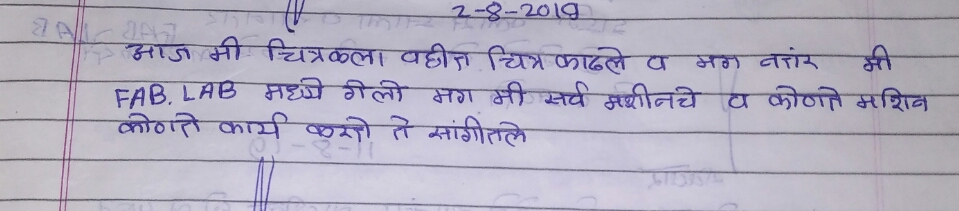 2-8-2019
आज मी चित्रकला वहीत चित्र काढले व मग नतंर मी
FAB. LAB मध्ये गेलो मग मी सर्व मशीनचे व कोणते मशिन
कोणते कार्य करतो ते सांगीतले